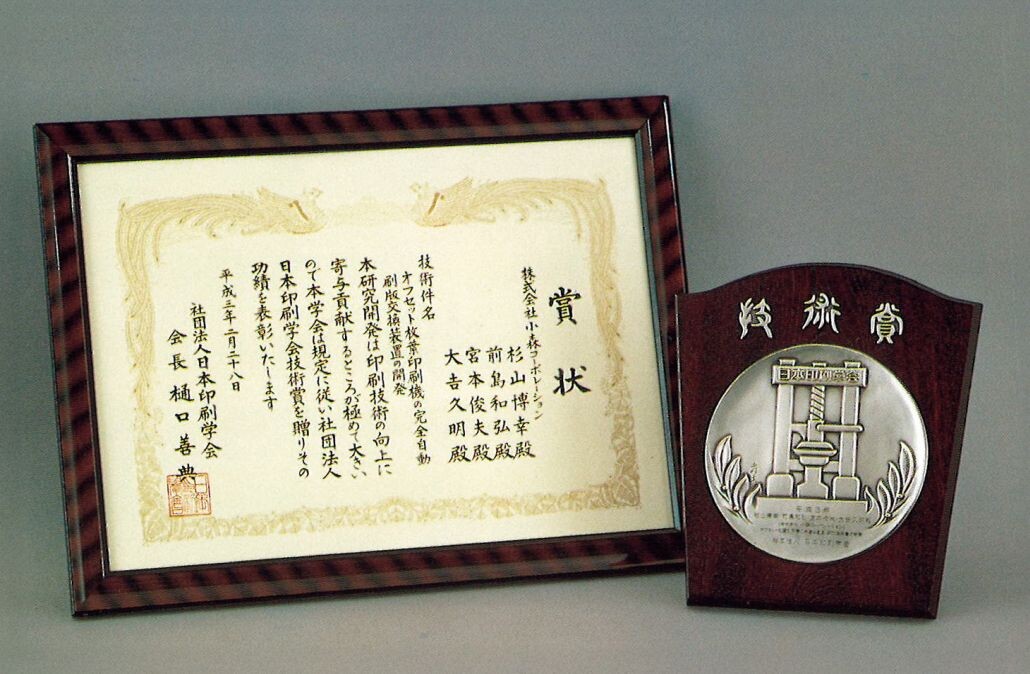 賞状
株式会社小森コーポレーション
杉山博幸殿
前島和弘殿
宮本俊夫殿
大𠮷久明殿
技術件名
オフセット枚葉印刷機の完全自動
刷版交換装置の開発
本研究開発は印刷技術の向上に
寄与貢献するところが極めて大きい
ので本学会は規定に従い社団法人
日本印刷学会技術賞を贈りその
功績を表彰いたします
平成三年二月二十八日
社団法人日本印刷学会
会長樋口善典
技術賞
日本印刷学会